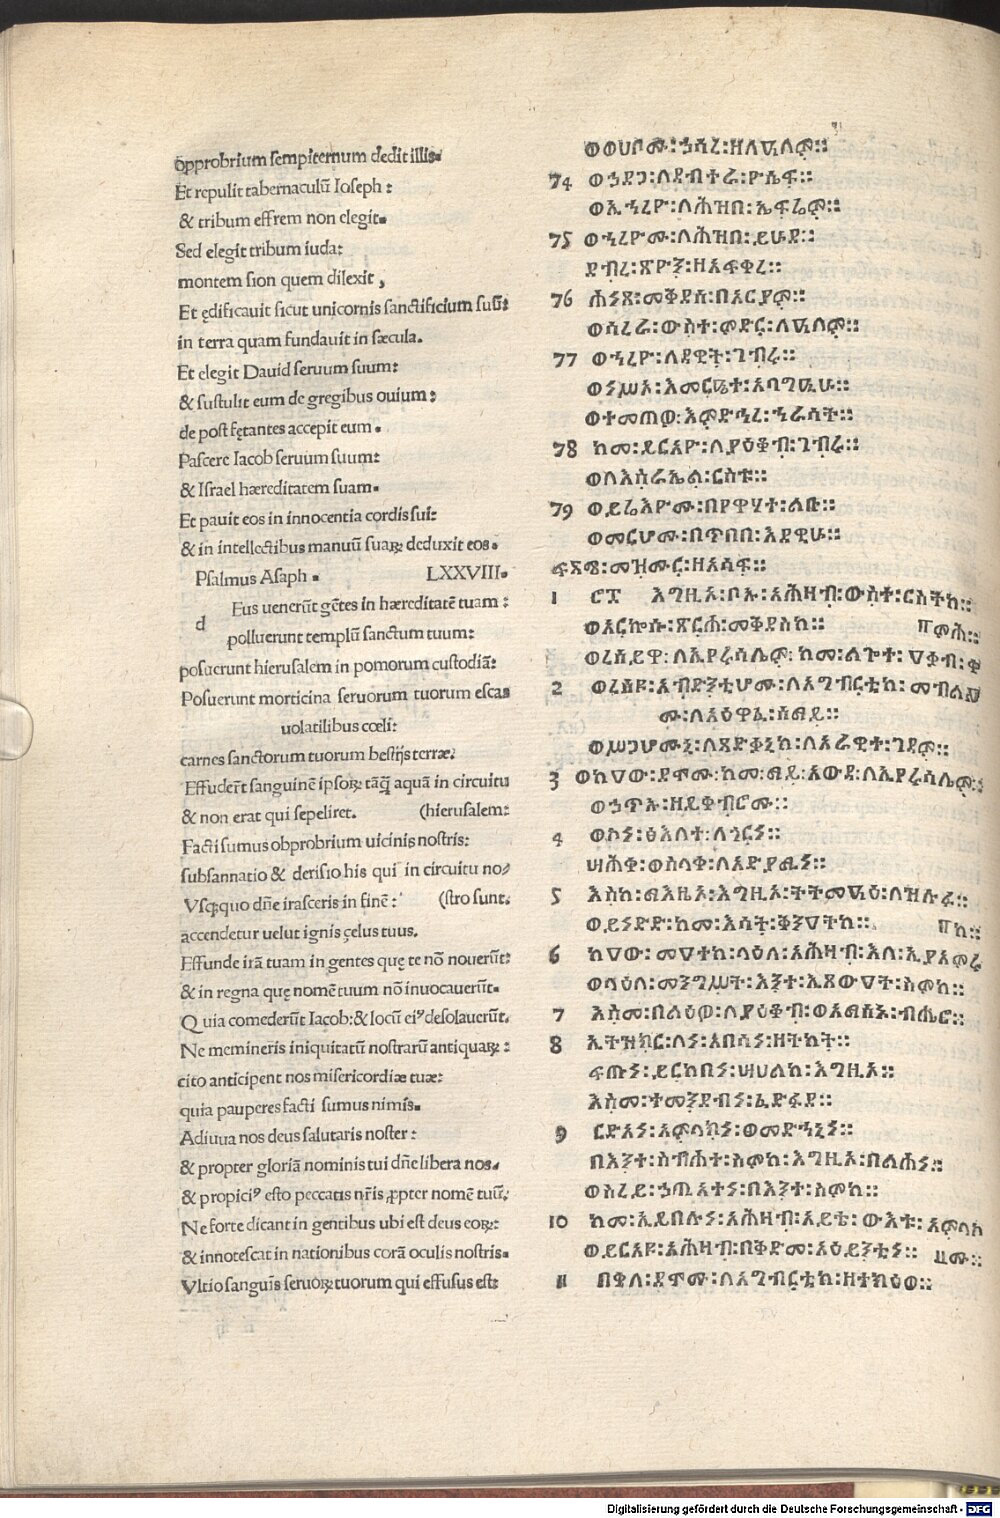 opprobrium sempiternum dedit illis.
Et repulit tabernaculū Ioseph :
& tribum effrem non elegit.
Sed elegit tribum iuda:
montem sion quem dilexit ,
Et ędificauit sicut unicornis sanctificium suū:
in terra quam fundauit in sæcula.
Et elegit Dauid seruum suum:
& sustulit eum de gregibus ouium:
de post fętantes accepit eum .
Pascere Iacob seruum suum:
& Israel hæreditatem suam.
Et pauit eos in innocentia cordis sui:
& in intellectibus manuū suaꝝ deduxit eos.
Psalmus Asaph . LXXVIII.
d Eus uenerūt gētes in hæreditatē tuam :
polluerunt templū sanctum tuum:
posuerunt hierusalem in pomorum custodiā:
Posuerunt morticina seruorum tuorum escas
uolatilibus cœli:
carnes sanctorum tuorum bestijs terræ.
Effuderūt sanguinē ipsoꝝ tāq̄ aquā in circuitu
& non erat qui sepeliret. (hierusalem:
Facti sumus obprobrium uicinis nostris:
subsannatio & derisio his qui in circuitu no/
Vsq;quo dñe irasceris in finē : (stro sunt.
accendetur uelut ignis çelus tuus.
Effunde irā tuam in gentes quę te nō nouerūt:
& in regna quę nomē tuum nō inuocauerūt.
Quia comederūt Iacob: & locū eiꝰ desolauerūt.
Ne memineris iniquitatū nostrarū antiquaꝝ :
cito anticipent nos misericordiæ tuæ:
quia pauperes facti sumus nimis.
Adiuua nos deus salutaris noster :
& propter gloriā nominis tui dñe libera nos.
& propiciꝰ esto peccatis nr̄is ꝓpter nomē tuū:
Ne forte dicant in gentibus ubi est deus eoꝝ:
& innotescat in nationibus corā oculis nostris.
Vltio sanguīs seruoꝝ tuorum qui effusus est:
ወወሀቦሙ፡ኀሳረ፡ዘለዓለም፡፡
74 ወኀደጋ፡ለደብተራ፡ዮሴፍ፡፡
ወኢኀረየ፡ለሕዝበ፡ኤፍሬም፡፡
75 ወኀረዮሙ፡ለሕዝበ፡ይሁዳ፡፡
ደብረ፡ጽዮን፡ዘአፍቀረ፡፡
76 ሐነጸ፡መቅደሰ፡በአርያም፡፡
ወሳረራ፡ውስተ፡ምድር፡ለዓለም፡፡
77 ወኀረዮ፡ለዳዊት፡ገብሩ፡፡
ወነሥአ፡እመርዔተ፡አባግዒሁ፡፡
ወተመጠዎ፡እምድኅረ፡ኀራሳት፡፡
78 ከመ፡ይርአዮ፡ለያዕቆብ፡ገብሩ፡፡
ወለእስራኤል፡ርስቱ፡፡
79 ወይሬእዮሙ፡በየዋሃተ፡ልቡ፡፡
ወመርሆሙ፡በጥበበ፡እደዊሁ፡፡
መዝሙር፡ዘአሳፍ፡፡
1 እግዚኦ፡ቦኡ፡አሕዛብ፡ውስተ፡ርስትከ፡፡
ወአርኰሱ፡ጽርሐ፡መቅደስከ፡፡
ወረሰይዋ፡ለኢየሩሳሌም፡ከመ፡ልገተ፡ዐቃቤ፡ቀ
2 ወረሰዩ፡አብድንቲሆሙ፡ለአግብርቲከ፡መብልዖ
ሙ፡ለአዕዋፈ፡ሰማይ፡፡
ወሥጋሆሙኒ፡ለጻድቃኒከ፡ለአራዊተ፡ገዳም፡፡
3 ወከዐዉ፡ደሞሙ፡ከመ፡ማይ፡አውዳ፡ለኢየሩሳሌም፡፡
ወኀጥኡ፡ዘይቀብሮሙ፡፡
4 ወኮነ፡ፅእለተ፡ለጎርነ፡፡
ሣሕቀ፡ወስላቀ፡ለአድያሚነ፡፡
5 እስከ፡ማእዜኑ፡እግዚኦ፡ትትመዓዕ፡ለዝሉፉ፡፡
ወይነድድ፡ከመ፡እሳት፡ቅንዐትከ፡፡
6 ከዐው፡መዐተከ፡ላዕለ፡አሕዛብ፡እለ፡ኢያአምሩ
ወላዕለ፡መንግሥት፡እንተ፡ኢጸውዐት፡ስመከ፡፡ ከ፡፡
7 እስመ፡በልዕዎ፡ለያዕቆብ፡ወአማሰኑ፡ብሔሮ፡፡
8 ኢትዝክር፡ለነ፡አበሳነ፡ዘትካት፡፡
ፍጡነ፡ይርከበነ፡ሣህልከ፡እግዚኦ፡፡
እስመ፡ተመንደብነ፡ፈድፋደ፡፡
9 ርድአነ፡አምላክነ፡ወመድኀኒነ፡፡
በእንተ፡ስብሐተ፡ስምከ፡እግዚኦ፡በልሐነ፡፡
ወስረይ፡ኀጢአተነ፡በእንተ፡ስምከ፡፡
10 ከመ፡ኢይበሉነ፡አሕዛብ፡አይቴ፡ውእቱ፡አምላክ
ወይርአዩ፡አሕዛብ፡በቅድመ፡አዕይንቲነ፡፡ ሙ፡፡
11 በቀለ፡ደሞሙ፡ለአግብርቲከ፡ዘተክዕወ፡፡
Digitalisierung gefördert durch die Deutsche Forschungsgemeinschaft - DFG